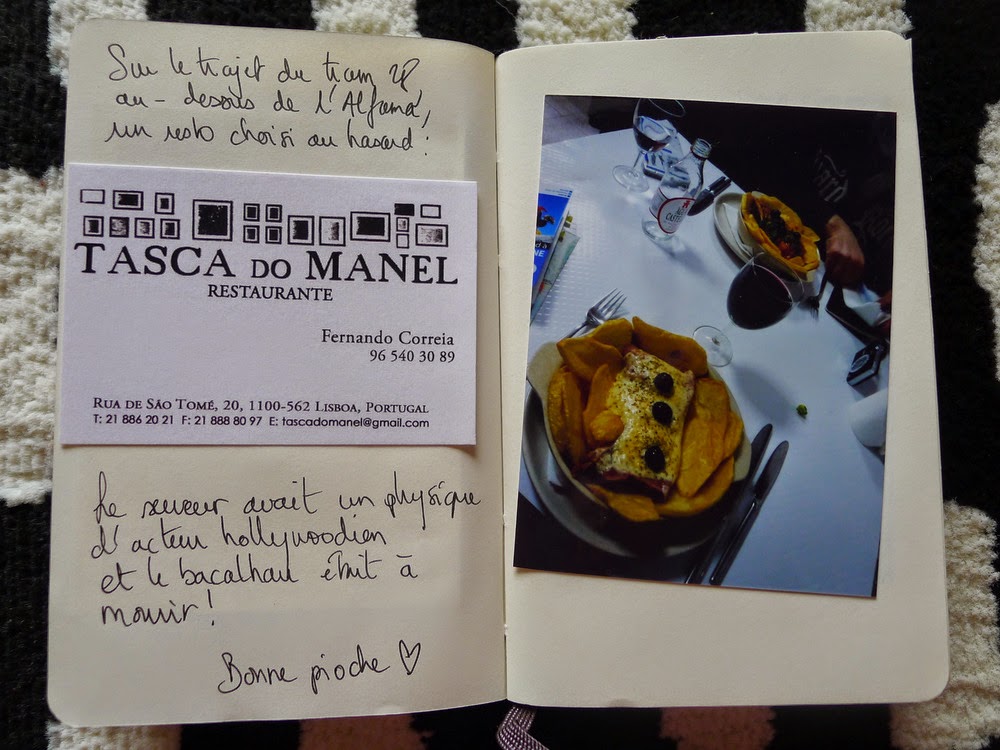 Sur le trajet du tram 28
au-dessus de l'Alfama,
un resto choisi au hasard :
TASCA DO MANEL
RESTAURANTE
Fernando Correia
96 540 30 89
RUA DE SÃO TOMÉ, 20, 1100-562 LISBOA, PORTUGAL
T: 21 886 20 21 F: 21 888 80 97 E: tascadomanel@gmail.com
Le serveur avait un physique
d'acteur hollywoodien
et le bacalhau était à
mourir !
Bonne pioche ♡